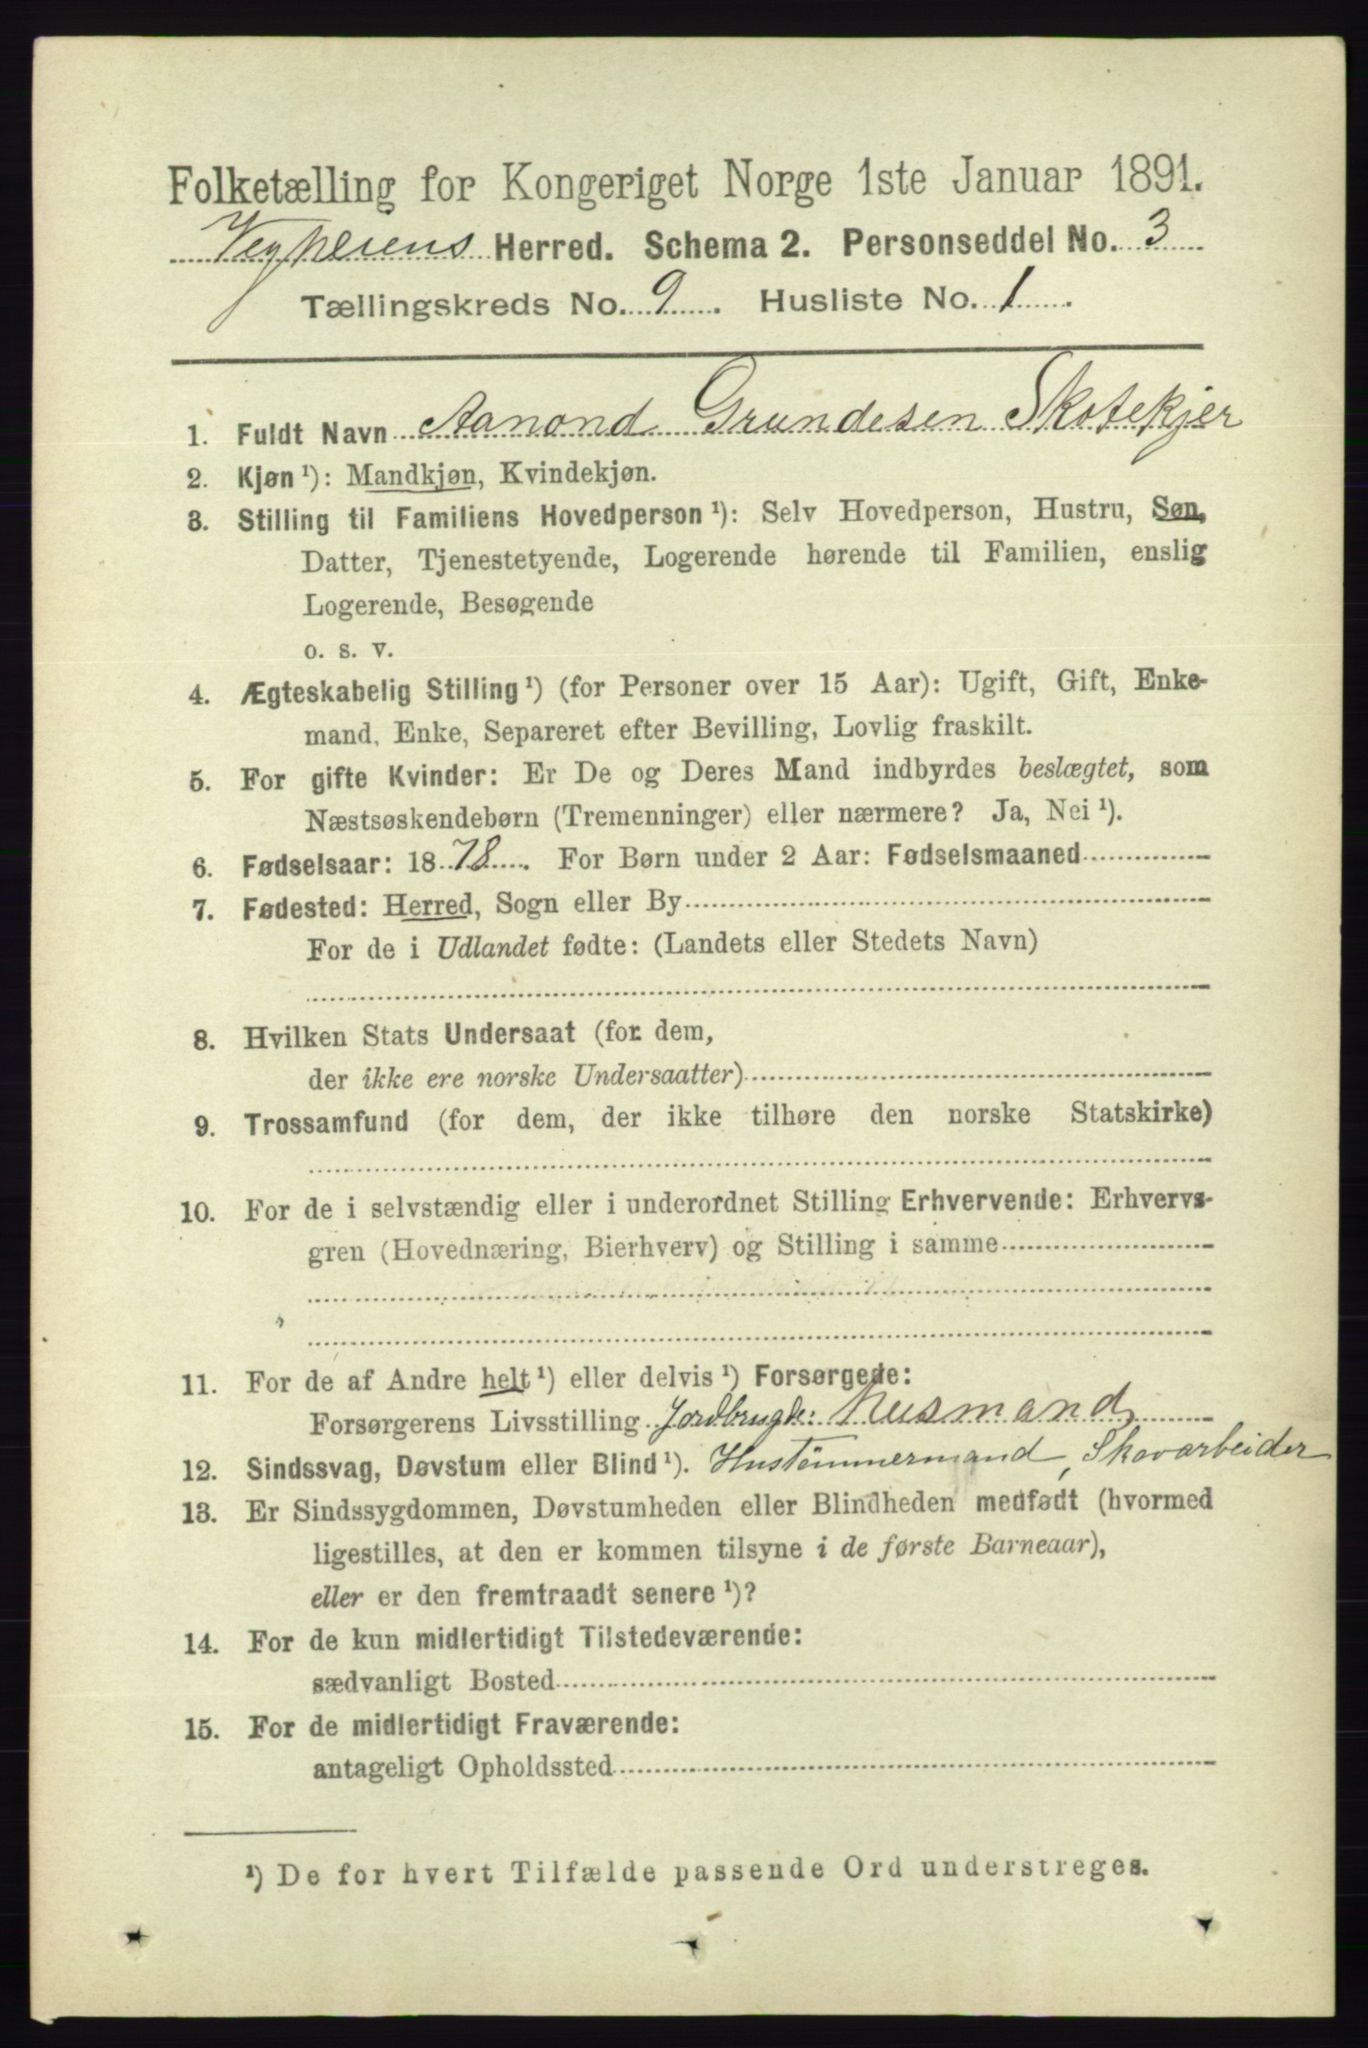 Folketælling for Kongeriget Norge 1ste Januar 1891.
Vegheiens Herred. Schema 2. Personseddel No. 3
Tællingskreds No. 9. Husliste No. 1.
1. Fuldt Navn Aanond Grundesen Skotekjer
2. Kjøn ¹): Mandkjøn, Kvindekjøn.
3. Stilling til Familiens Hovedperson ¹): Selv Hovedperson, Hustru, Søn,
Datter, Tjenestetyende, Logerende hørende til Familien, enslig
Logerende, Besøgende
o. s. v.
4. Ægteskabelig Stilling ¹) (for Personer over 15 Aar): Ugift, Gift, Enke-
mand, Enke, Separeret efter Bevilling, Lovlig fraskilt.
5. For gifte Kvinder: Er De og Deres Mand indbyrdes beslægtet, som
Næstsøskendebørn (Tremenninger) eller nærmere? Ja, Nei ¹).
6. Fødselsaar: 1878. For Børn under 2 Aar: Fødselsmaaned
7. Fødested: Herred, Sogn eller By
For de i Udlandet fødte: (Landets eller Stedets Navn)
8. Hvilken Stats Undersaat (for dem,
der ikke ere norske Undersaatter)
9. Trossamfund (for dem, der ikke tilhøre den norske Statskirke)
10. For de i selvstændig eller i underordnet Stilling Erhvervende: Erhvervs-
gren (Hovednæring, Bierhverv) og Stilling i samme
11. For de af Andre helt ¹) eller delvis ¹) Forsørgede:
Forsørgerens Livsstilling Jordbrugde: Husmand,
12. Sindssvag, Døvstum eller Blind ¹). Hustømmermand, Skovarbeider
13. Er Sindssygdommen, Døvstumheden eller Blindheden medfødt (hvormed
ligestilles, at den er kommen tilsyne i de første Barneaar),
eller er den fremtraadt senere ¹)?
14. For de kun midlertidigt Tilstedeværende:
sædvanligt Bosted
15. For de midlertidigt Fraværende:
antageligt Opholdssted
¹) De for hvert Tilfælde passende Ord understreges.